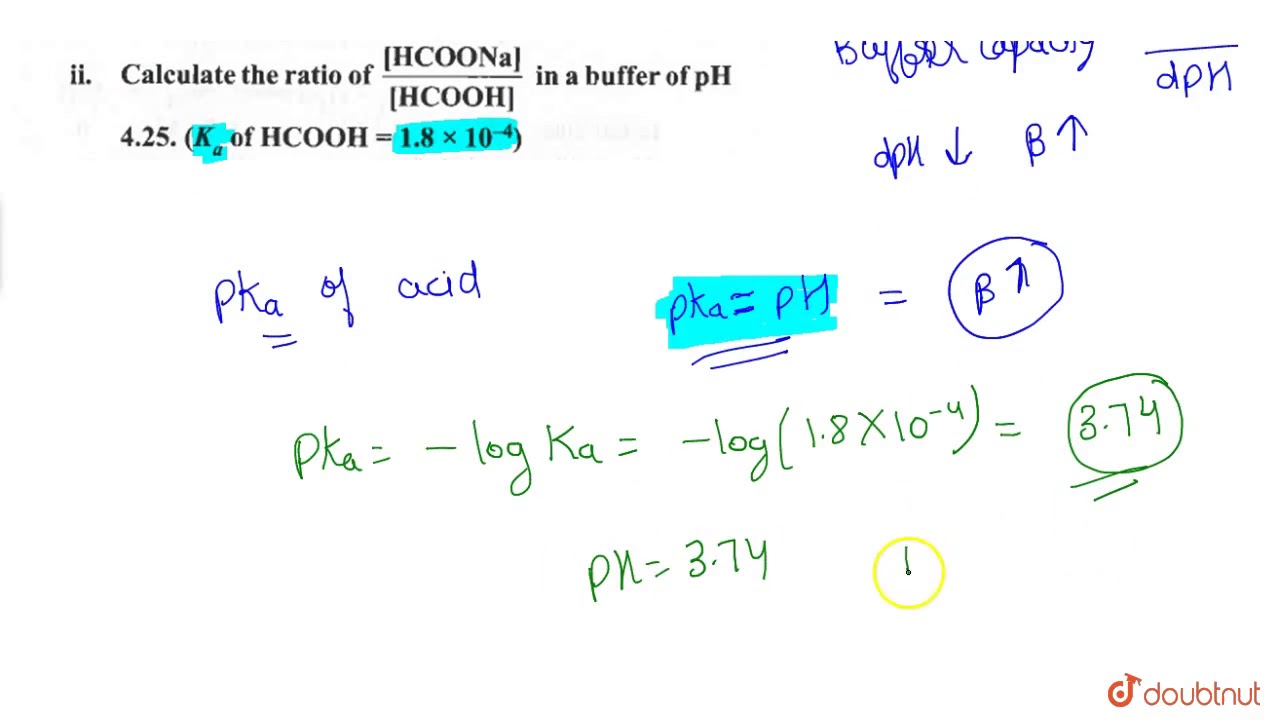 Buffer Capacity
dpH
ii. Calculate the ratio of [HCOONa] / [HCOOH] in a buffer of pH
4.25. (Kₐ of HCOOH = 1.8 × 10⁻⁴)
dpH ↓ β ↑
pKa of acid
pKa = pH = β ↑
pKa = – log Ka = – log(1.8 × 10⁻⁴) = 3.74
pH = 3.74 1
doubtnut